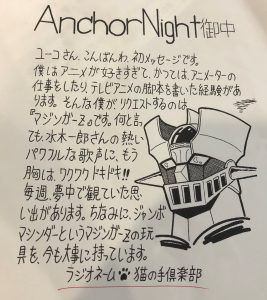 AnchorNight御中
ユーコさん、こんばんわ、初メッセージです。
僕はアニメが好きすぎて、かつては、アニメーターの
仕事をしたり、テレビアニメの脚本を書いた経験があ
ります。そんな僕が、リクエストするのは、
『マジンガーZ』です。何と言っ
ても、水木一郎さんの熱い
パワフルな歌声に、もう
胸は、ワクワクドキドキ!!
毎週、夢中で観ていた思
い出があります。ちなみに、ジャンボ
マシンダーというマジンガーZの玩
具を、今も大事に持っています。
ラジオネーム🐾猫の手倶楽部